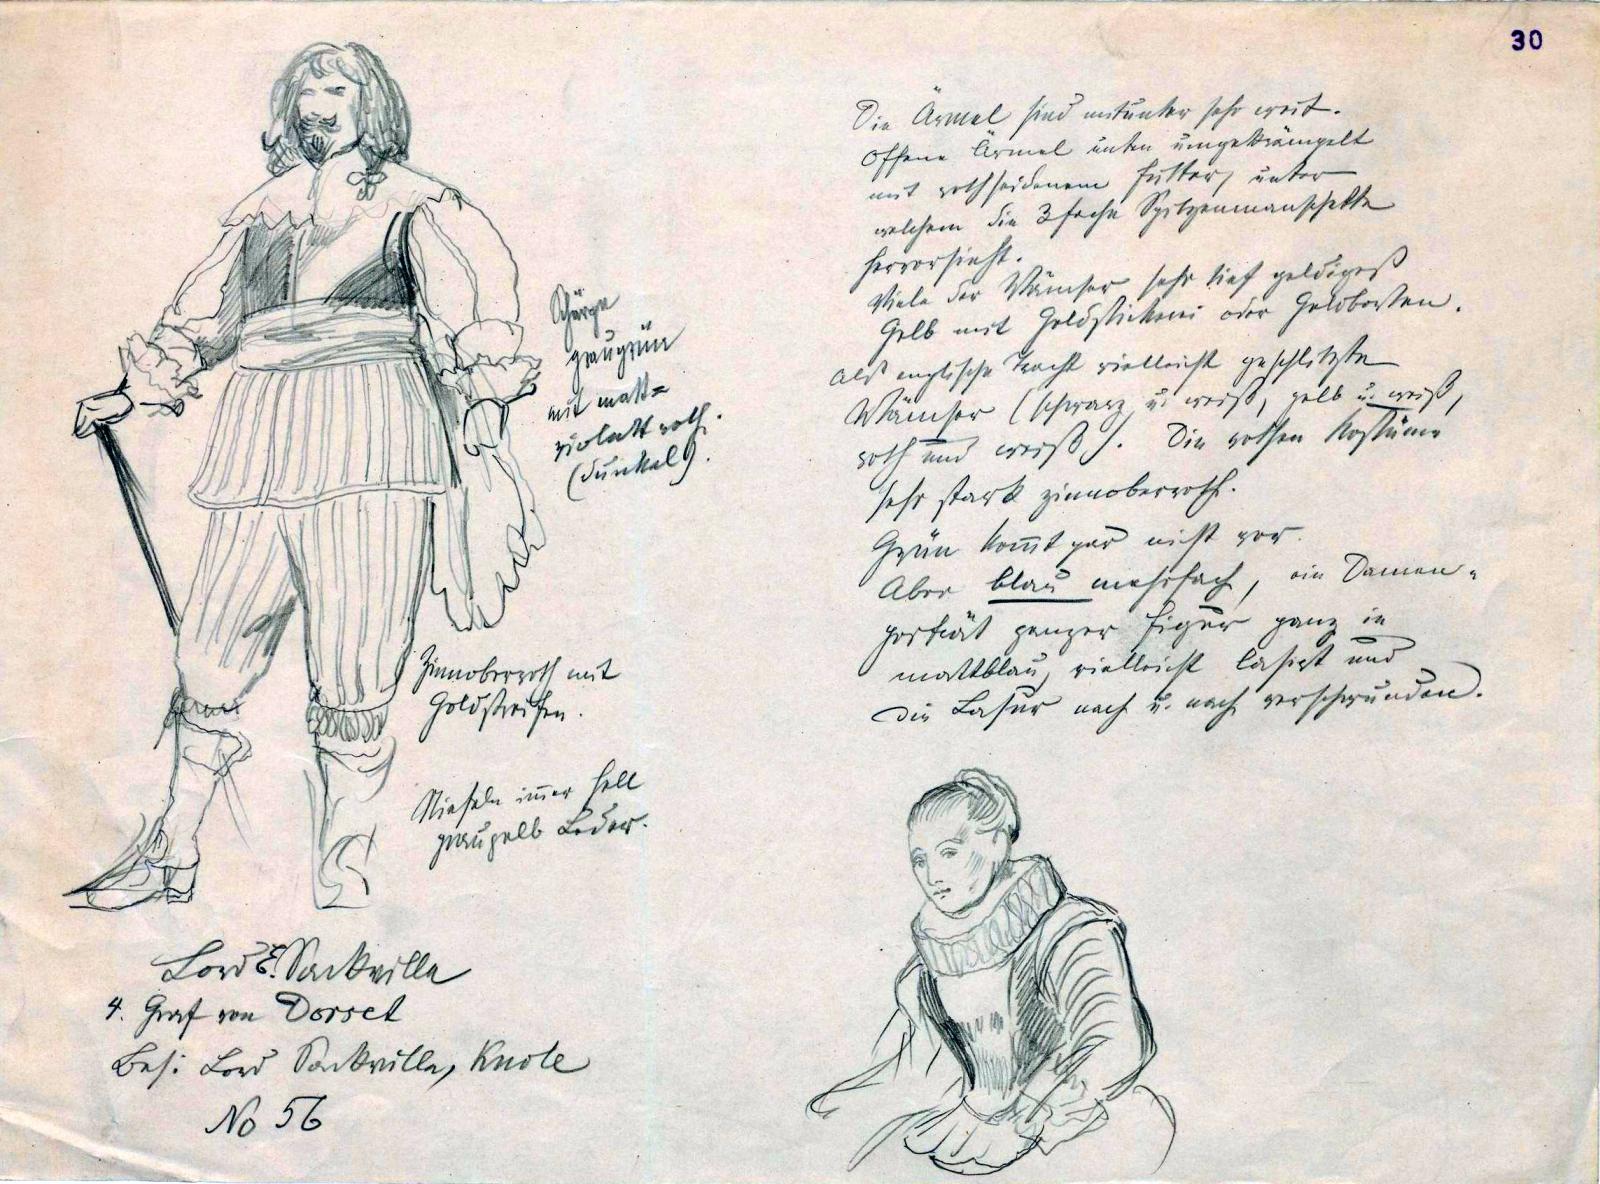 30
Schärpe
graugrün
mit matt=
violett roth.
(dunkel).
Zinnoberroth mit
Goldstreifen.
Stiefeln immer hell
graugelb Leder.
Lord E. Sackville
4. Graf von Dorset
Bes: Lord Sackville, Knole
No 56
Die Ärmel sind mitunter sehr weit.
Offene Ärmel unten umgekrämpelt
mit rothseidenem Futter, unter
welchem die 3fache Spitzenmanschette
hervorsieht.
Viele der Wämser sehr tief
Gelb mit Goldstickerei oder Goldborten.
Als englische Tracht vielleicht geschlitzte
Wämser (schwarz u. weiß, gelb u. weiß,
roth und weiß). Die rothen Kostüme
sehr stark zinnoberroth.
Grün kommt gar nicht vor.
Aber blau mehrfach, ein Damen=
porträt ganzer Figur ganz in
mattblau, vielleicht lasirt und
die Lasur nach u. nach verschwunden.